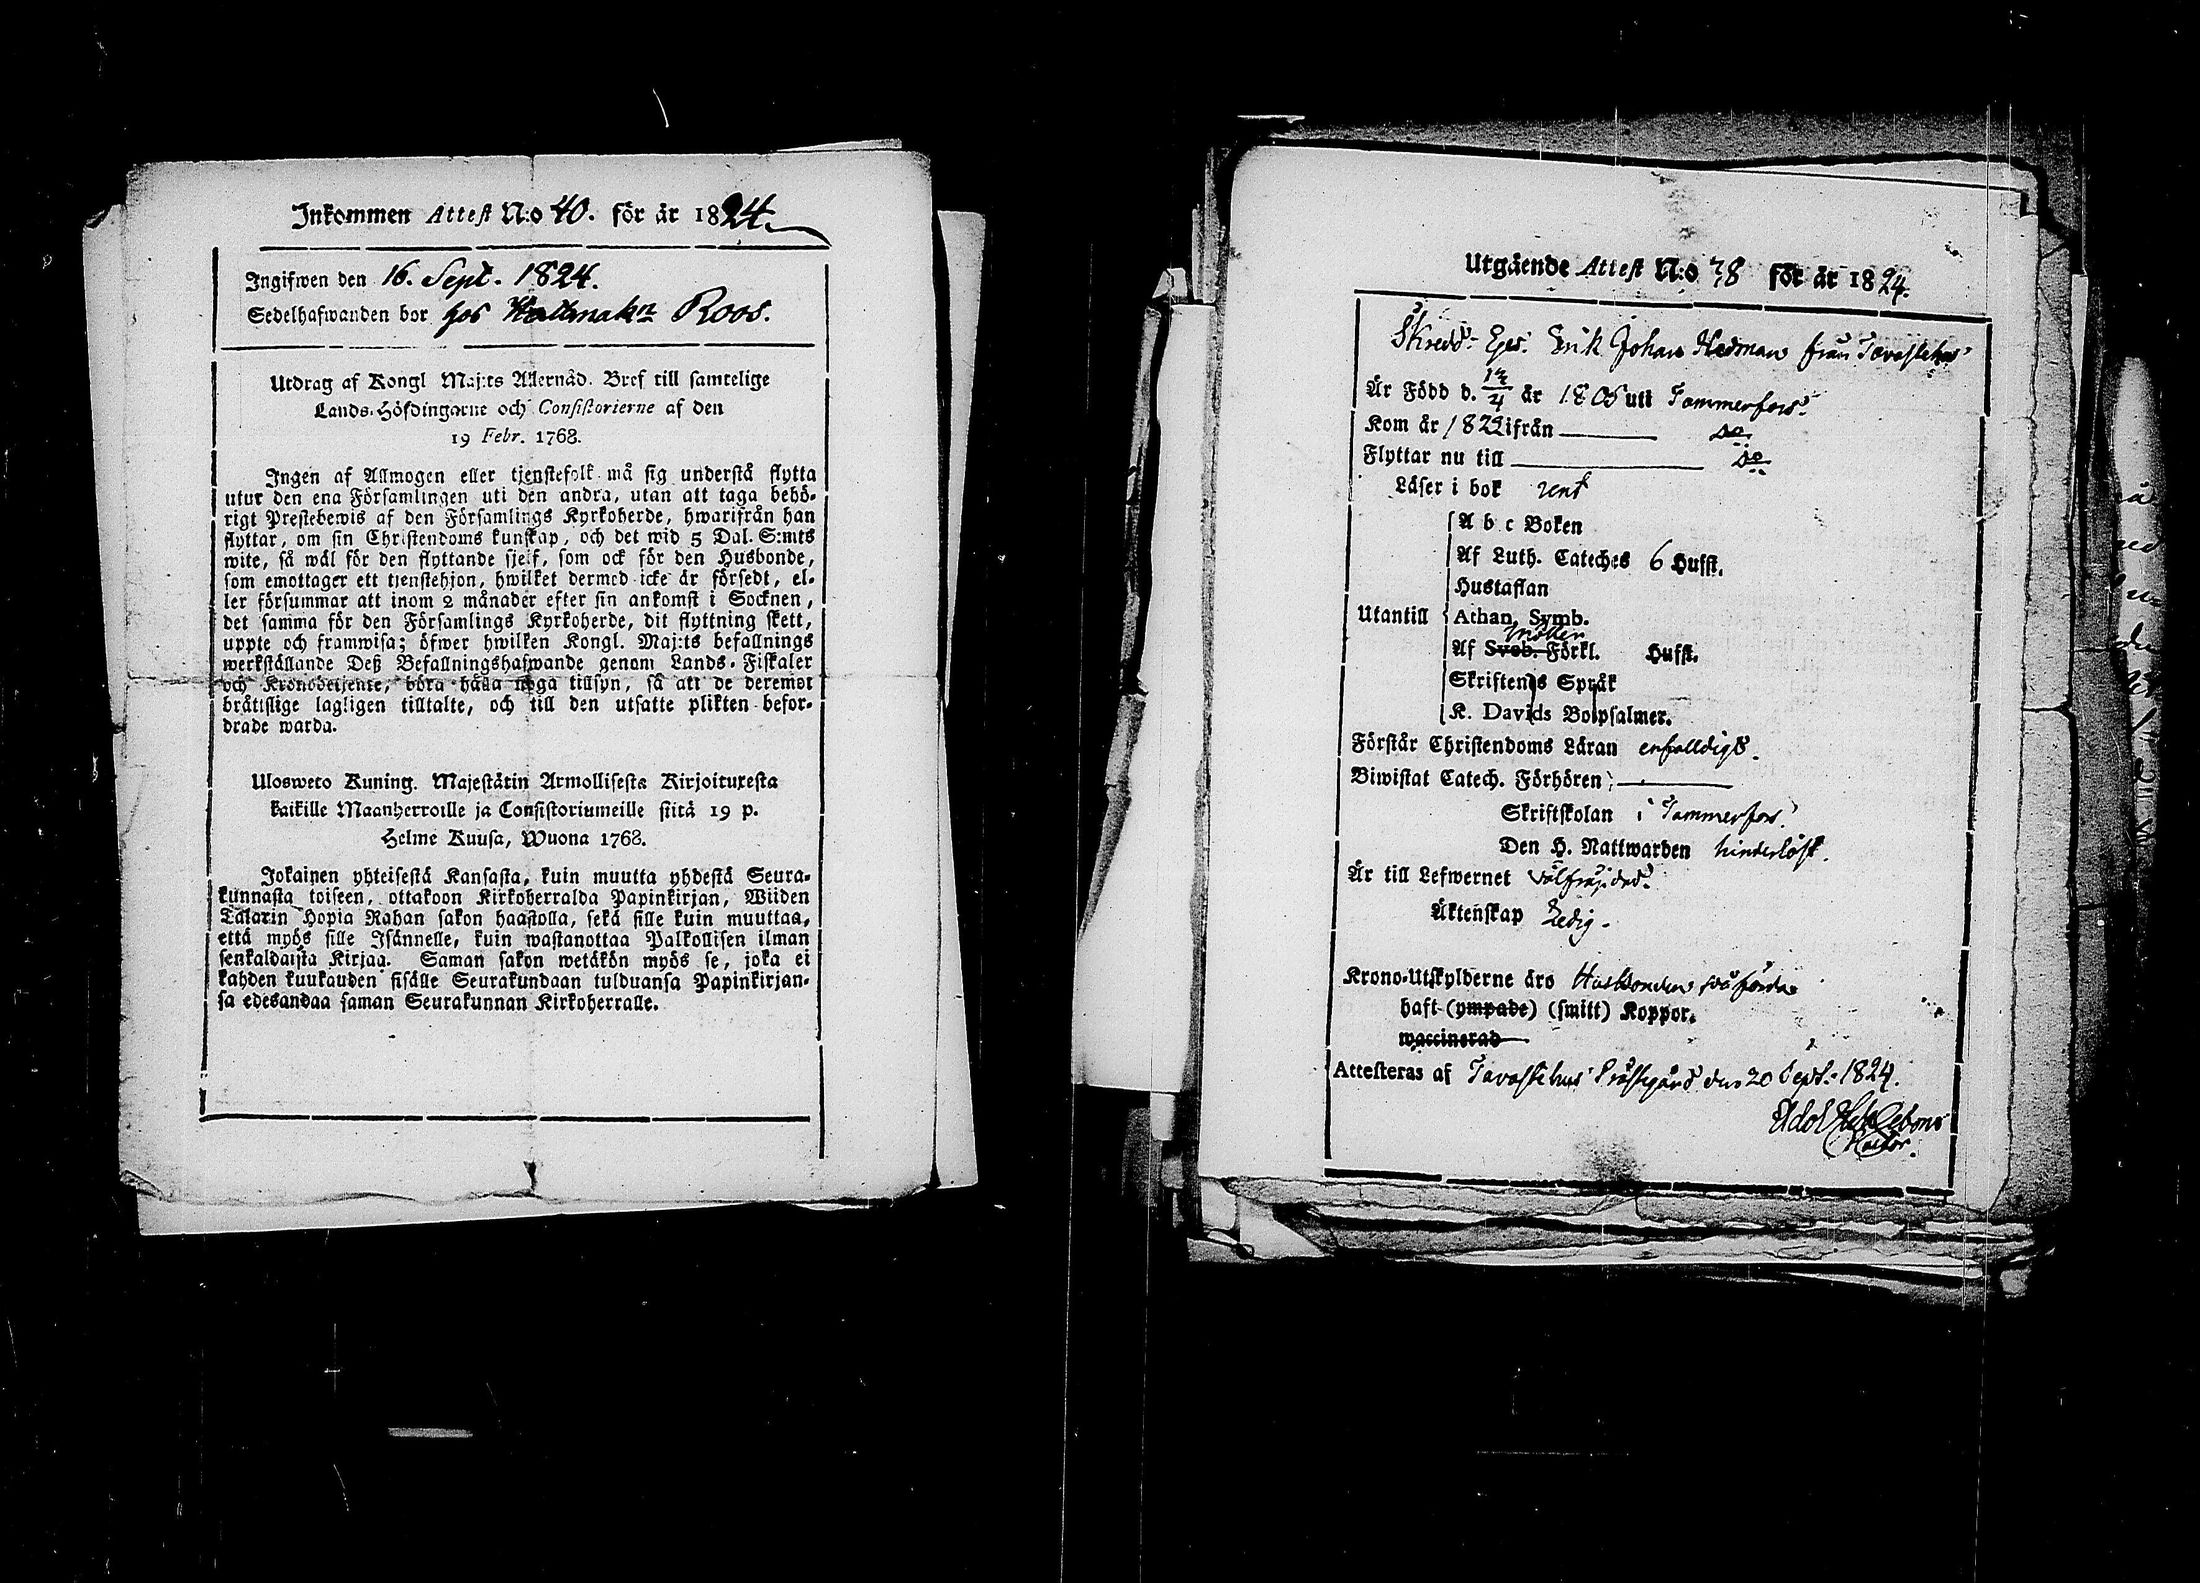 Inkommen Attest N:o 40. för år 1824.
Ingifwen den 16. Sept. 1824.
Sedelhafwanden bor hos Hattmak:n Roos.
Utdrag af Kongl Maj:ts Allernåd. Bref till samtelige
Lands-Höfdingarne och Consistorierne af den
19 Febr. 1768.
Ingen af Allmogen eller tjenstefolk må sig understå flytta
utur den ena Församlingen uti den andra, utan att taga behö-
rigt Prestebewis af den Församlings Kyrkoherde, hwarifrån han
flyttar, om sin Christendoms kunskap, och det wid 5 Dal. S:mts
wite, så wäl för den flyttande sjelf, som ock för den Husbonde,
som emottager ett tjenstehjon, hwilket dermed icke är försedt, el-
ler försummar att inom 2 månader efter sin ankomst i Socknen,
det samma för den Församlings Kyrkoherde, dit flyttning skett,
uppte och framwisa; öfwer hwilken Kongl. Maj:ts befallnings
werkställande Deß Befallningshafwande genom Lands-Fiskaler
och Kronobetjente, böra hålla noga tillsyn, så att de deremot
bråttslige lagligen tilltalte, och till den utsatte plikten befor-
drade warda.
Ulosweto Kuning. Majestätin Armollisesta Kirjoituxesta
kaikille Maanherroille ja Consistoriumeille siitä 19 p.
Helme Kuusa, Wuona 1768.
Jokainen yhteisestä Kansasta, kuin muutta yhdestä Seura-
kunnasta toiseen, ottakoon Kirkoherralda Papinkirjan, Wiiden
Talarin Hopia Rahan sakon haastolla, sekä sille kuin muuttaa,
että myös sille Isännelle, kuin wastanottaa Palkollisen ilman
senkaldaista Kirjaa. Saman sakon wetäkön myös se, joka ei
kahden kuukauden sisälle Seurakundaan tulduansa Papinkirjan-
sa edesandaa saman Seurakunnan Kirkoherralle.
Utgående Attest N:o 78 för år 1824.
Skredd: Ges. Erik Johan Hedman från Tavastehus
Är Född d. 4 år 1805 uti Tammerfors.
Kom år 1822 ifrån do
Flyttar nu till do
Läser i bok rent
A b c Boken
Af Luth. Cateches 6 Hufst.
Hustaflan
Utantill Athan. Symb.
Möller
Af Sveb. Förkl. Hufst.
Skriftenes Språk
K. Davids Botpsalmer.
Förstår Christendoms Läran enfalldigt.
Biwistat Catech. Förhören
Skriftskolan i Tammerfors.
Den H. Nattwarden hinderlöst.
Är till Lefwernet välfräjdad.
Äktenskap Ledig.
Krono-Utskylderne äro Husbonden påförda
haft (ympade) (smitt) Koppor.
waccinerad
Attesteras af Tavastehus Prästgård den 20 Sept. 1824.